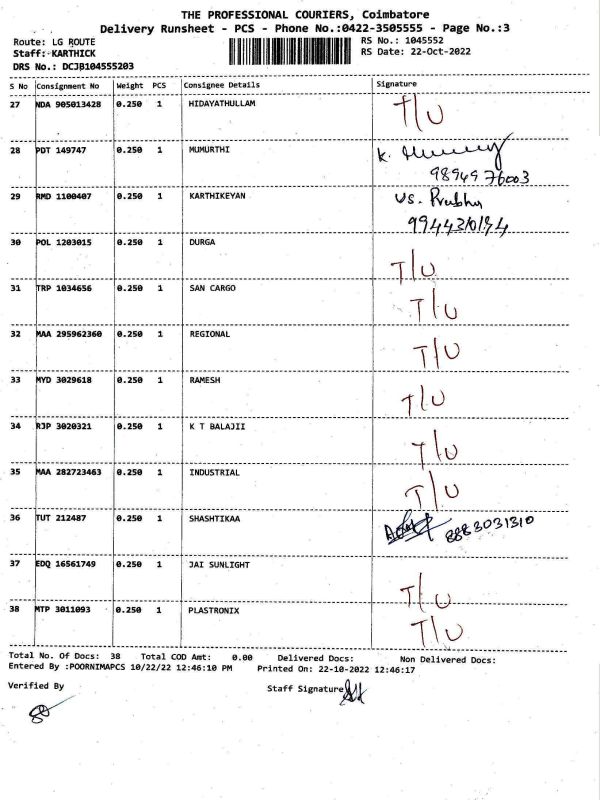 THE PROFESSIONAL COURIERS, Coimbatore
Delivery Runsheet - PCS - Phone No.:0422-3505555 - Page No.:3
Route: LG ROUTE
RS No.: 1045552
Staff:-KARTHICK
RS Date: 22-Oct-2022
DRS No.: DCJB104555203
S No Consignment No Weight PCS Consignee Details Signature
27 NDA 905013428 0.250 1 HIDAYATHULLAM T/U
28 PDT 149747 0.250 1 MUMURTHI K.
98949 76003
29 RMD 1100407 0.250 1 KARTHIKEYAN VS. Prabhu
30 POL 1203015 0.250 1 DURGA T/U
31 TRP 1034656 0.250 1 SAN CARGO T/U
32 MAA 295962360 0.250 1 REGIONAL T/U
33 MYD 3029618 0.250 1 RAMESH T/U
34 RJP 3020321 0.250 1 K T BALAJII T/U
35 MAA 282723463 0.250 1 INDUSTRIAL T/U
36 TUT 212487 0.250 1 SHASHTIKAA 8883031310
37 EDQ 16561749 0.250 1 JAI SUNLIGHT T/U
38 MTP 3011093 0.250 1 PLASTRONIX T/U
Total No. Of Docs: 38 Total COD Amt: 0.00 Delivered Docs: Non Delivered Docs:
Entered By :POORNIMAPCS 10/22/22 12:46:10 PM Printed On: 22-10-2022 12:46:17
Verified By
Staff Signature